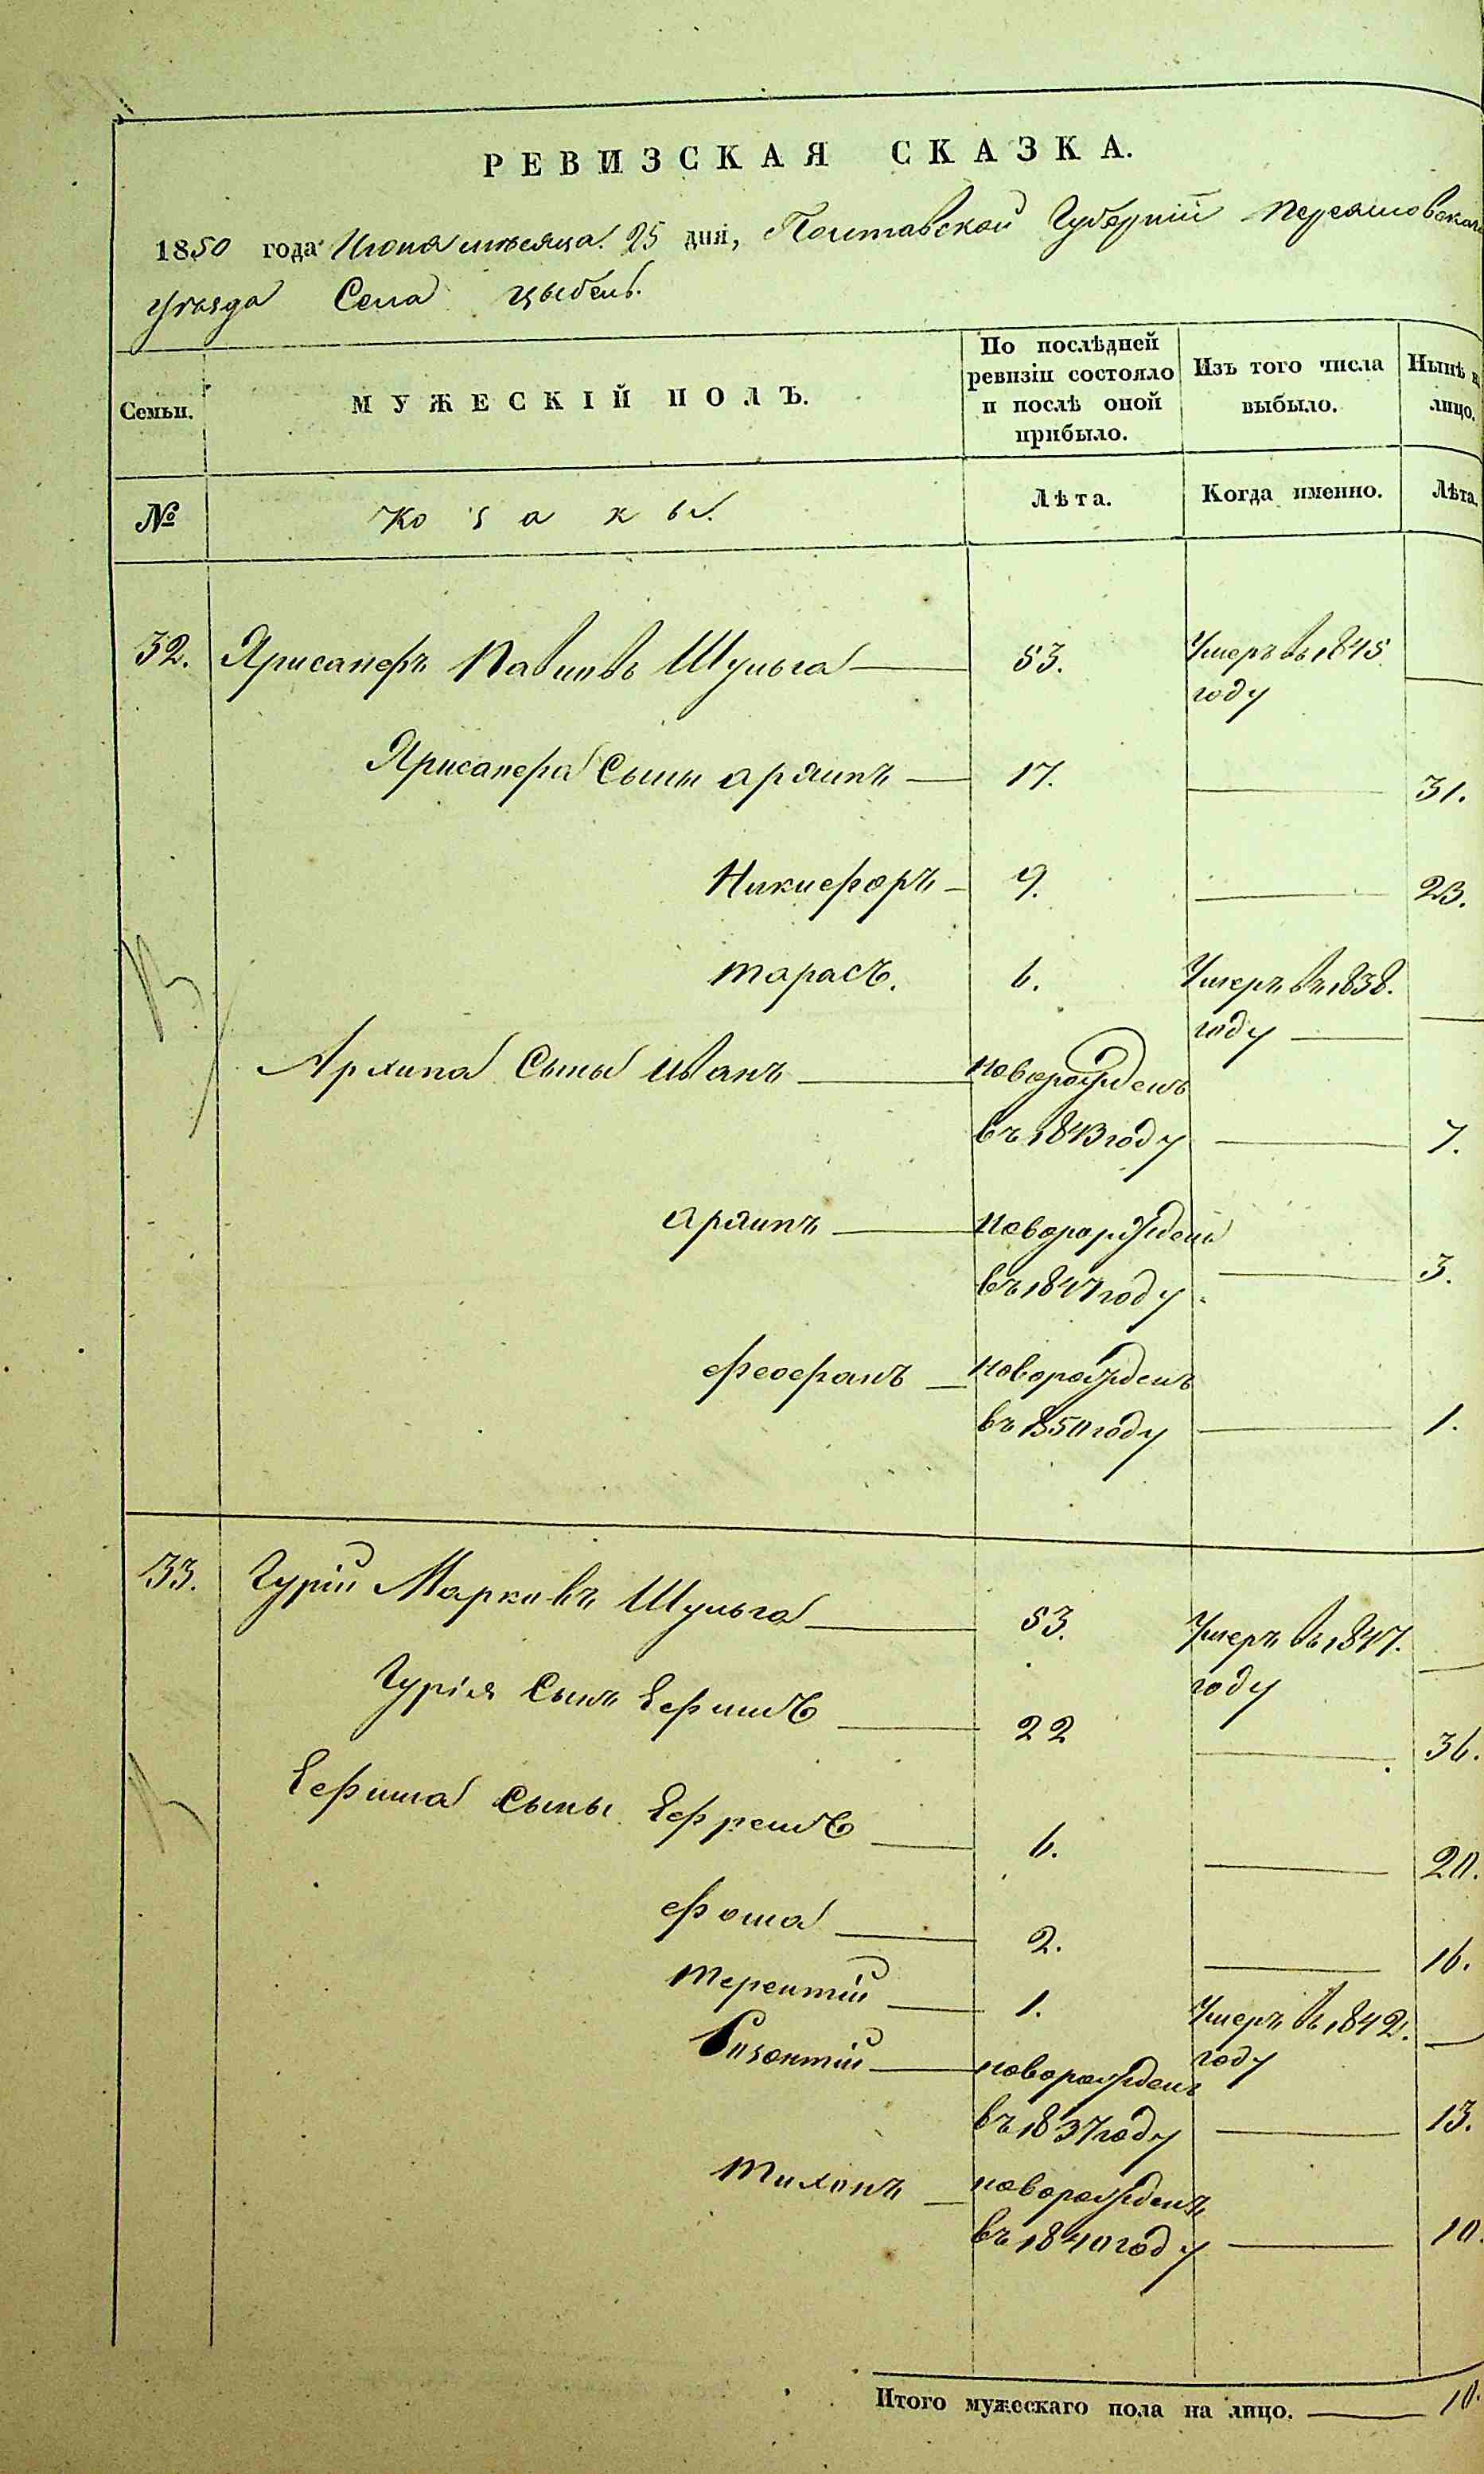 РЕВИЗСКАЯ СКАЗКА.
1850 года Июня месяца 25 дня, Полтавской Губерніи Переясловскаго
уѣзда Села Цыбель.
Семьи. МУЖЕСКІЙ ПОЛЪ. По послѣдней ревизіи состояло и послѣ оной прибыло. Изъ того числа выбыло. Нынѣ на лицо.
№ Козаки. Лѣта. Когда именно. Лѣта.
32. Павловъ Шульга 53. Умеръ въ 1845
году
сыны Архипъ 17. 31.
Никифоръ 9. 23.
Тарасъ. 6. Умеръ въ 1838.
году
Архипа Сыны Иванъ новорожденъ
въ 1843 году 7.
Архипъ новорожденъ
въ 1847 году. 3.
Феофанъ новорожденъ
въ 1850 году 1.
33. Гурій Марковъ Шульга 53. Умеръ въ 1847.
году
Гурія Сынъ Ефимъ 22 36.
Ефима сыны Ефремъ 6. 20.
Фома 2. 16.
Терентій 1. Умеръ въ 1842.
году
новорожденъ
въ 1837 году 13.
Тихонъ новорожденъ
въ 1840 году 10.
Итого мужескаго пола на лицо. 10.